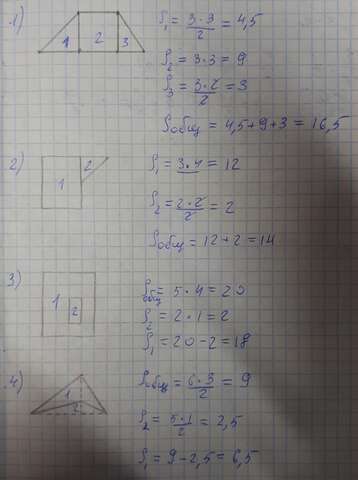 1)
1 2 3
S₁ = 3·3/2 = 4,5
S₂ = 3·3 = 9
S₃ = 3·2/2 = 3
Sобщ = 4,5+9+3 = 16,5
2)
1 2
S₁ = 3·4 = 12
S₂ = 2·2/2 = 2
Sобщ = 12+2 = 14
3)
1 2
Sобщ = 5·4 = 20
S₂ = 2·1 = 2
S₁ = 20-2 = 18
4)
1
2
Sобщ = 6·3/2 = 9
S₂ = 5·1/2 = 2,5
S₁ = 9-2,5 = 6,5